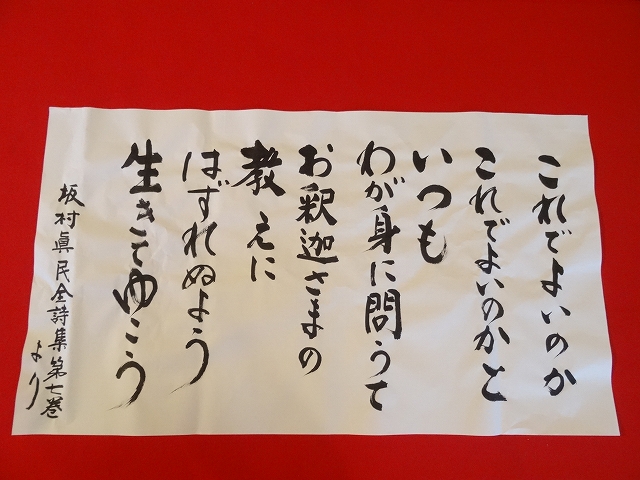 これでよいのか
これでよいのかと
いつも
わが身に問うて
お釈迦さまの
教えに
はずれぬよう
生きてゆこう
坂村眞民全詩集第七巻
より